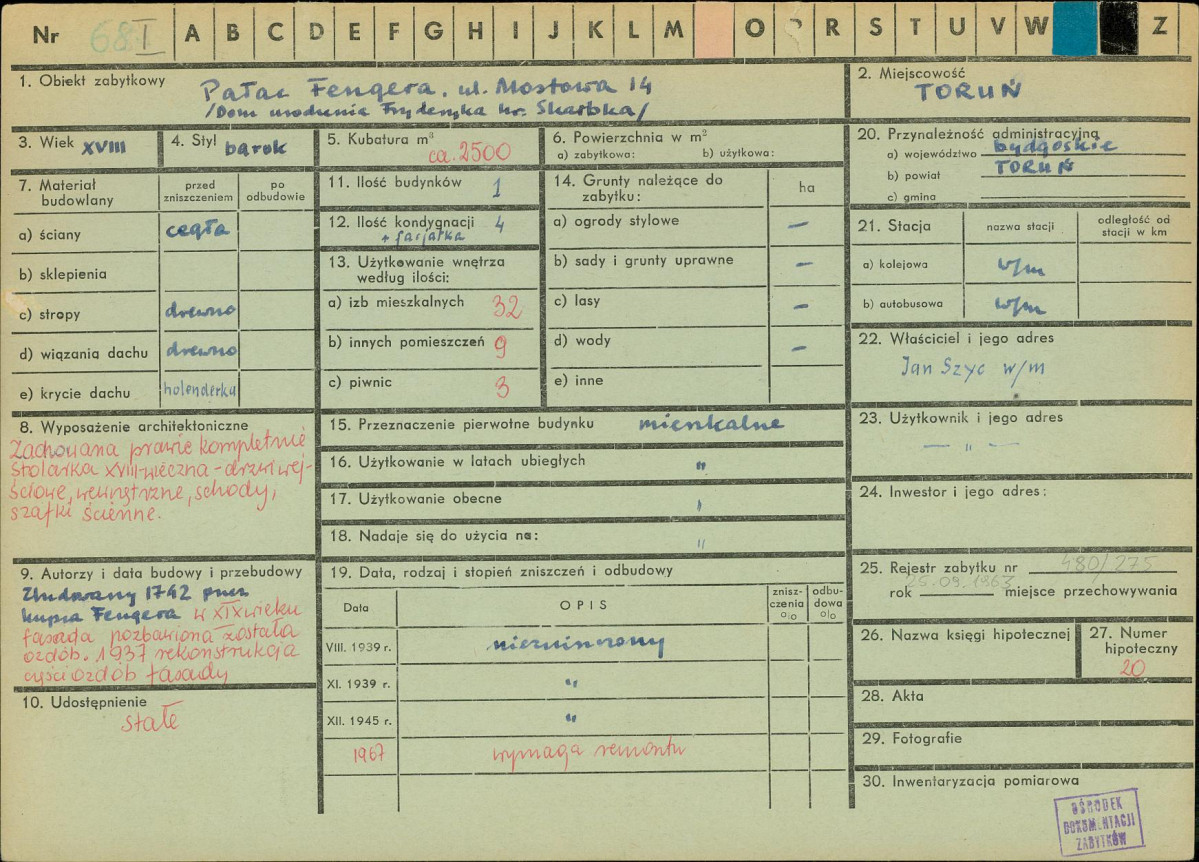 Nr 68 I A B C D E F G H I J K L M O P R S T U V W Z
1. Obiekt zabytkowy
Pałac Fengera, ul. Mostowa 14
/Dom urodzenia Fryderyka hr. Skarbka/
2. Miejscowość
TORUŃ
3. Wiek XVIII
4. Styl barok
5. Kubatura m³
ca. 2500
6. Powierzchnia w m²
a) zabytkowa: b) użytkowa:
20. Przynależność administracyjna
a) województwo bydgoskie
b) powiat TORUŃ
c) gmina
7. Materiał budowlany
przed zniszczeniem
po odbudowie
a) ściany cegła
b) sklepienia
c) stropy drewno
d) wiązania dachu drewno
e) krycie dachu holenderka
11. Ilość budynków 1
12. Ilość kondygnacji 4
+ facjatka
13. Użytkowanie wnętrza
według ilości:
a) izb mieszkalnych 32
b) innych pomieszczeń 9
c) piwnic 3
14. Grunty należące do
zabytku:
ha
a) ogrody stylowe —
b) sady i grunty uprawne —
c) lasy —
d) wody —
e) inne
21. Stacja
nazwa stacji
odległość od
stacji w km
a) kolejowa w/m
b) autobusowa w/m
22. Właściciel i jego adres
Jan Szyc w/m
23. Użytkownik i jego adres
— „ —
24. Inwestor i jego adres:
8. Wyposażenie architektoniczne
Zachowana prawie kompletnie
stolarka XVIII-wieczna - drzwi wej-
ściowe, wewnętrzne, schody,
szafki ścienne.
15. Przeznaczenie pierwotne budynku mieszkalne
16. Użytkowanie w latach ubiegłych "
17. Użytkowanie obecne "
18. Nadaje się do użycia na: "
9. Autorzy i data budowy i przebudowy
Zbudowany 1742 przez
kupca Fengera w XIX wieku
fasada pozbawiona została
ozdób. 1937 rekonstrukcja
części ozdób fasady
10. Udostępnienie
stałe
19. Data, rodzaj i stopień zniszczeń i odbudowy
Data
OPIS
znisz-
czenia
%
odbu-
dowa
%
VIII. 1939 r. niezniszczony
XI. 1939 r. "
XII. 1945 r. "
1967 wymaga remontu
25. Rejestr zabytku nr 480/275
rok 25.09.1963 miejsce przechowywania
26. Nazwa księgi hipotecznej
27. Numer
hipoteczny
20
28. Akta
29. Fotografie
30. Inwentaryzacja pomiarowa
OŚRODEK
DOKUMENTACJI
ZABYTKÓW